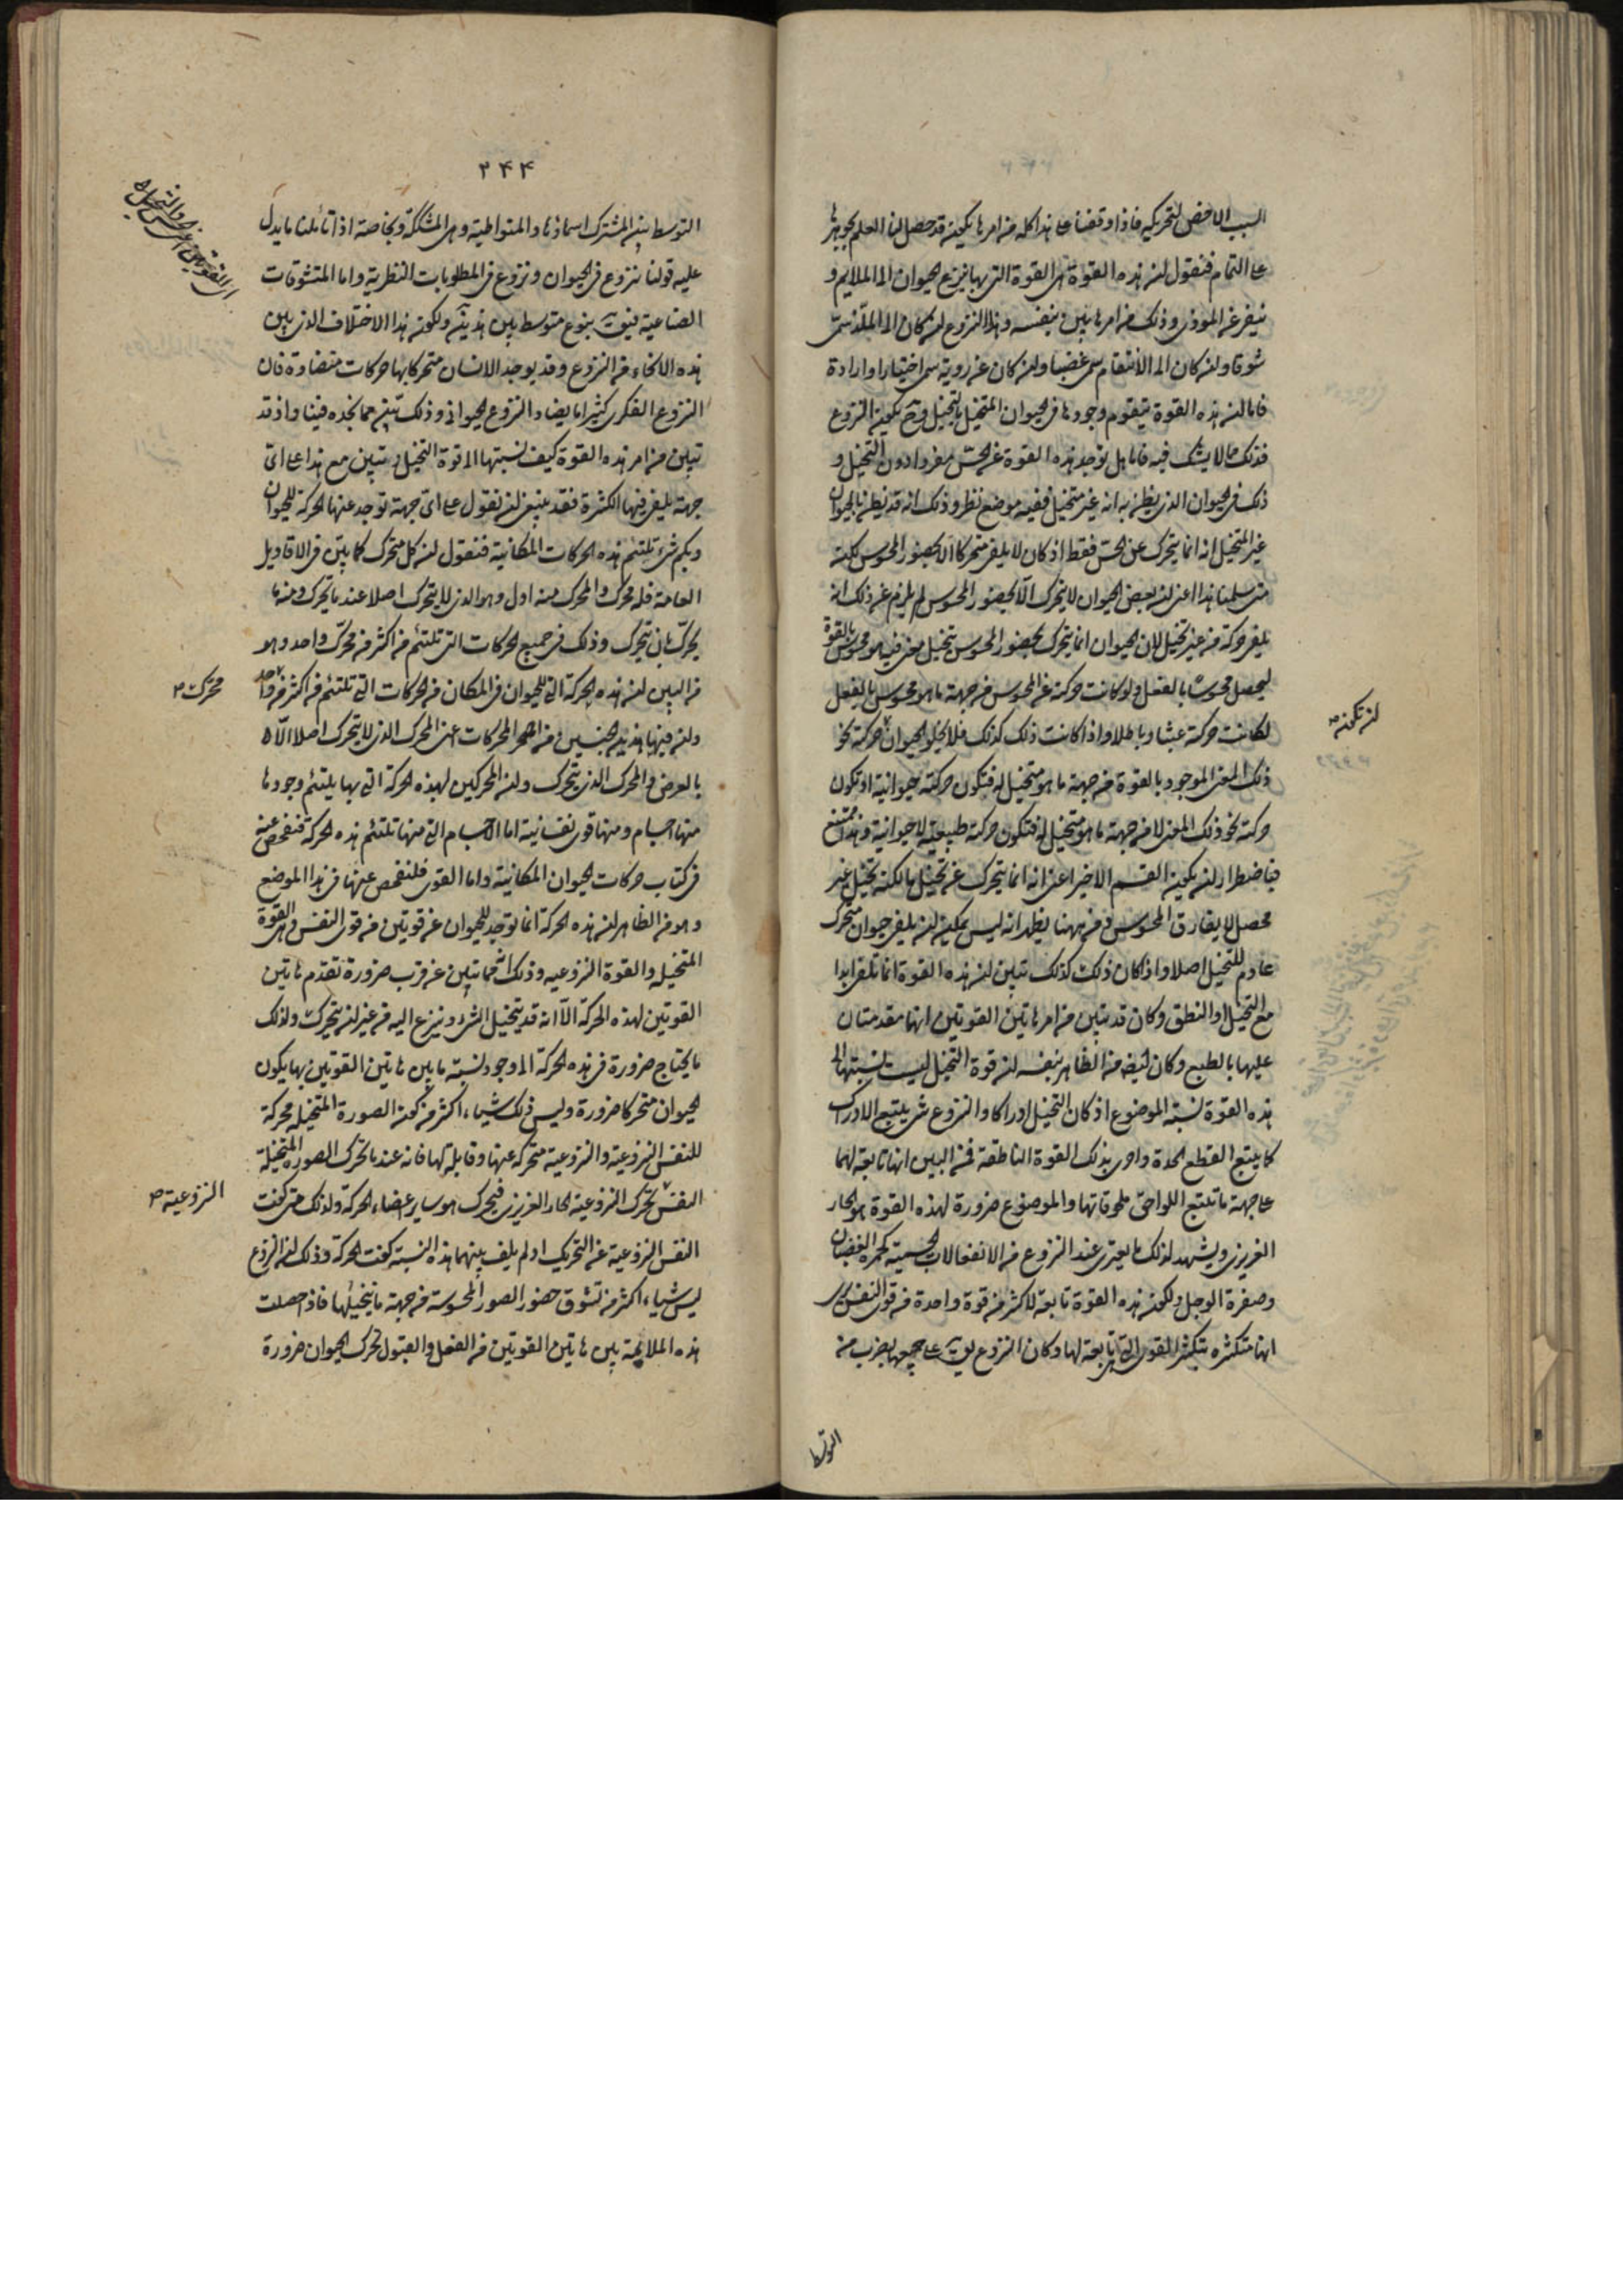 السبب الاخص لتحريكه فاذا وقفنا على هذا كله من امرها يكون قد حصل لنا العلم بجوهرها
على التمام فنقول ان هذه القوة هى القوة التى بها ينزع الحيوان الى الملايم و
ينفر عن الموذى وذلك من امرها بين بنفسه وهذا النزوع ان كان الى الملذ سمى
شوقا وان كان الى الانتقام سمى غضبا وان كان عن روية سمى اختيارا وارادة
فاما ان هذه القوة يتقوم وجودها فى الحيوان المتخيل بالتخيل وح يكون النزوع
فذلك مما لا يشك فيه فاما هل توجد هذه القوة عن الحس مفردا دون التخيل و
ذلك فى الحيوان الذى يظن به انه غير متخيل ففيه موضع نظر وذلك انه قد يظن بالحيوان
غير المتخيل انه انما يتحرك عن الحس فقط اذ كان لا يلفى متحركا الا بحضور المحسوس لكنه
متى سلمنا هذا اعنى ان بعض الحيوان لا يتحرك الا بحضور المحسوس لم يلزم عن ذلك انه
يلفى حركة من غير تخيل لان الحيوان انما يتحرك بحضور المحسوس بتخيل معنى فيه هو محسوس بالقوة
ليحصل محسوسا بالفعل ولو كانت حركته عن المحسوس من جهة ما هو محسوس بالفعل
لكانت حركته عبثا وباطلا واذا كانت ذلك كذلك فلا يخلو الحيوان حركة نحو
ان تكون ص
ذلك المعنى الموجود بالقوة من جهة ما هو متخيل له فتكون حركته حيوانية او تكون
حركته نحو ذلك المعنى لا من جهة ما هو متخيل له فتكون حركته طبيعية لا حيوانية وهذا ممتنع
فباضطرار ان يكون القسم الاخير اعنى انه انما يتحرك عن تخيل ما لكنه تخيل غير
محصل لا يفارق المحسوس ومن ههنا يظهر انه ليس يمكن ان يلفى حيوان متحرك
عادم للتخيل اصلا واذا كان ذلك كذلك تبين ان هذه القوة انما تلفى ابدا
مع التخيل او النطق وكان قد تبين من امر هاتين القوتين انها متقدمتان
عليها بالطبع وكان ايضا من الظاهر بنفسه ان قوة التخيل ليست نسبتها الى
هذه القوة نسبة الموضوع اذ كان التخيل ادراكا والنزوع شى يتبع الادراك
كما يتبع القطع الحدة واحرى بذلك القوة الناطقة فمن البين انها تابعة لهما
على جهة ما تتبع اللواحق ملحوقاتها والموضوع ضرورة لهذه القوة هو الحار
الغريزى ويشهد لذلك ما يعترى عند النزوع من الانفعالات الجسمية كحمرة الغضبان
وصفرة الوجل ولكون هذه القوة تابعة لاكثر من قوة واحدة من قوى النفس نرى
انها متكثرة بتكثر القوى التى هى تابعة لها وكان النزوع يق على جميعها بضرب من
التوسط
٢٤٤
التوسط بين المشترك اسماؤها والمتواطية وهى المشككة وبخاصة اذا تأملنا ما يدل
عليه قولنا نزوع فى الحيوان ونزوع فى المطلوبات النظرية واما المتشوقات
الصناعية فيق بنوع متوسط بين هذين ولكون هذا الاختلاف الذى بين
هذه الانحاء من النزوع وقد يوجد الانسان متحركا بها حركات متضادة فان
النزوع الفكرى كثيرا ما يضاد النزوع الحيوانى وذلك بين مما نجده فينا واذ قد
تبين من امر هذه القوة كيف نسبتها الى قوة التخيل وتبين مع هذا على اى
جهة يلفى فيها الكثرة فقد ينبغى ان نقول على اى جهة توجد عنها الحركة للحيوان
وبكم شى تلتئم هذه الحركات المكانية فنقول ان كل متحرك كما بين فى الاقاويل
العامة فله محرك والمحرك منه اول وهو الذى لا يتحرك اصلا عند ما يحرك ومنه ما
يحرك بان يتحرك وذلك فى جميع الحركات التى تلتئم من اكثر من محرك واحد وهو
من البين ان هذه الحركة التى للحيوان فى المكان من الحركات التى تلتئم من اكثر من واحد
محرك ص
وان فيها هذين الجنسين من المحركات اعنى المحرك الذى لا يتحرك اصلا الا
بالعرض والمحرك الذى يتحرك وان المحركين لهذه الحركة التى بها يلتئم وجودها
منها اجسام ومنها قوى نفسانية اما الاجسام التى منها تلتئم هذه الحركة فنفحص عنه
فى كتاب حركات الحيوان المكانية واما القوى فلنفحص عنها فى هذا الموضع
وهو من الظاهر ان هذه الحركة انما توجد للحيوان عن قوتين من قوى النفس وهى القوة
المتخيلة والقوة النزوعية وذلك انه مما تبين عن قرب ضرورة تقدم هاتين
القوتين لهذه الحركة الا انه قد يتخيل الشى وينزع اليه من غير ان يتحرك ولذلك
ما يحتاج ضرورة فى هذه الحركة الى وجود نسبة ما بين هاتين القوتين بها يكون
الحيوان متحركا ضرورة وليس ذلك شياء اكثر من كون الصورة المتخيلة محركة
للنفس النزوعية والنزوعية متحركة عنها وقابلة لها فانه عند ما تحرك الصورة المتخيلة
النفس تحرك النزوعية الحار الغريزى فيحرك هو ساير اعضاء الحركة ولذلك متى كفت
النزوعية ص
النفس النزوعية عن التحريك او لم يلف بينهما هذه النسبة كفت الحركة وذلك ان النزوع
ليس شياء اكثر من تشوق حضور الصور المحسوسة من جهة ما نتخيلها فاذا حصلت
هذه الملايمة بين هاتين القوتين من الفعل والقبول تحرك الحيوان ضرورة